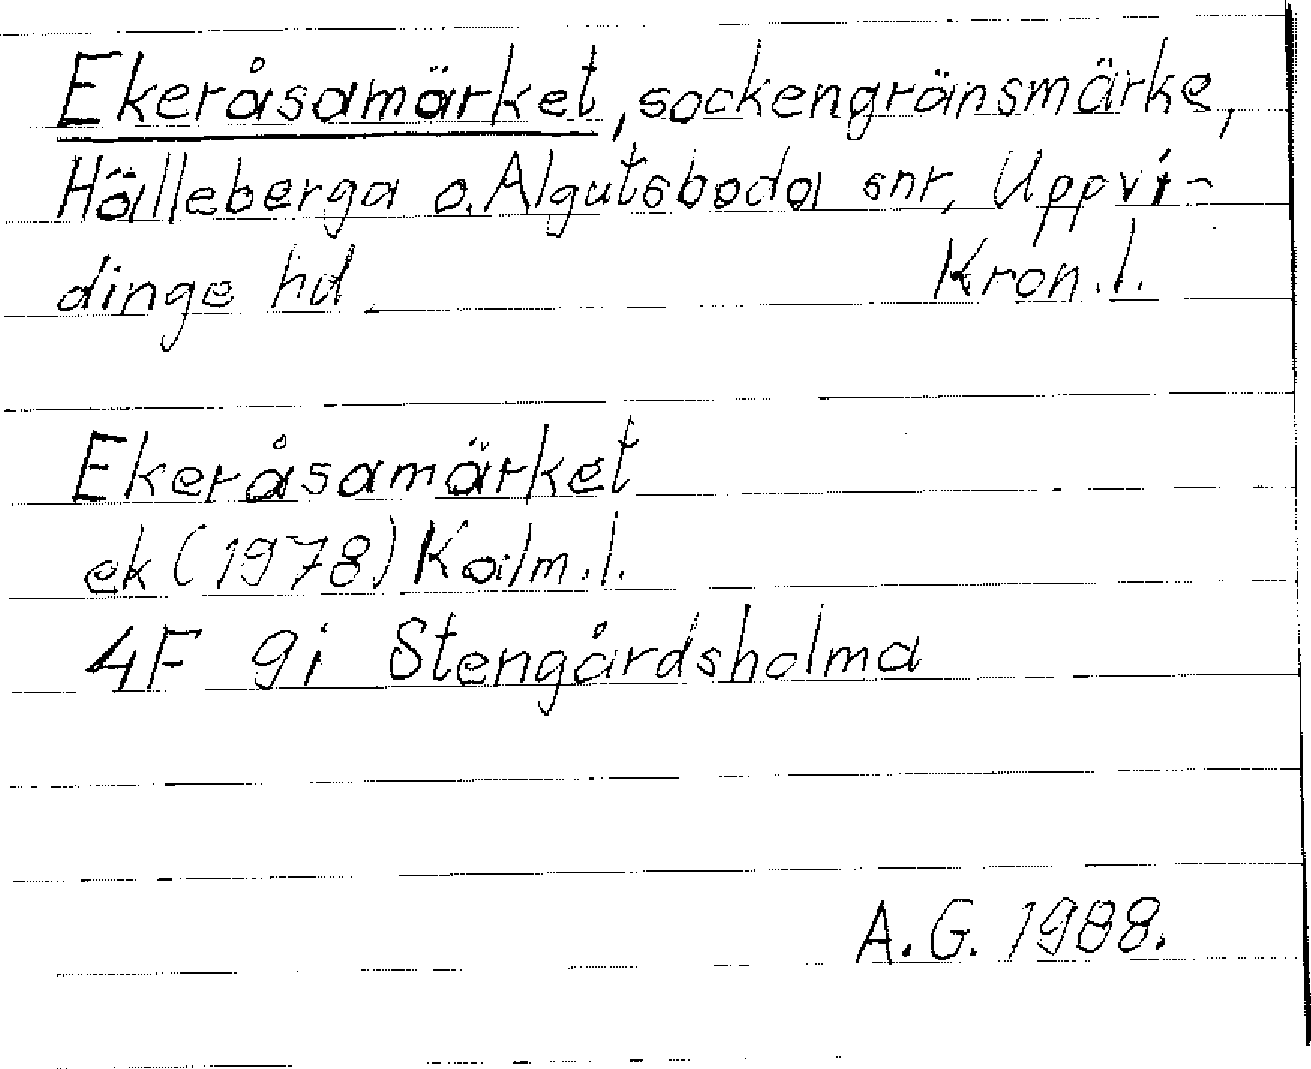 Ekeråsamärket, sockengränsmärke,
Hälleberga o. Algutsboda snr, Uppvi-
dinge hd Kron.l.
Ekeråsamärket
ek (1978) Kalm.l.
4F 9i Stengårdsholma
A.G. 1988.